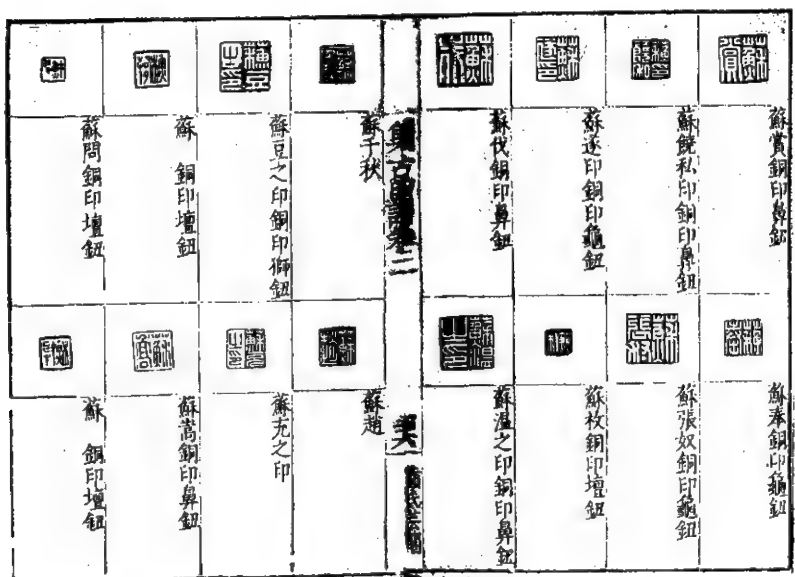 蘇賞銅印鼻鈕
蘇饒私印銅印鼻鈕
蘇遂印銅印龜鈕
蘇伐銅印鼻鈕
蘇奉銅印龜鈕
蘇張奴銅印龜鈕
蘇枚銅印壇鈕
蘇溫之印銅印鼻鈕
集古印譜卷二
蘇千秋
蘇豆之印銅印獅鈕
蘇 銅印壇鈕
蘇問銅印壇鈕
蘇趙
蘇充之印
蘇嵩銅印鼻鈕
蘇 銅印壇鈕